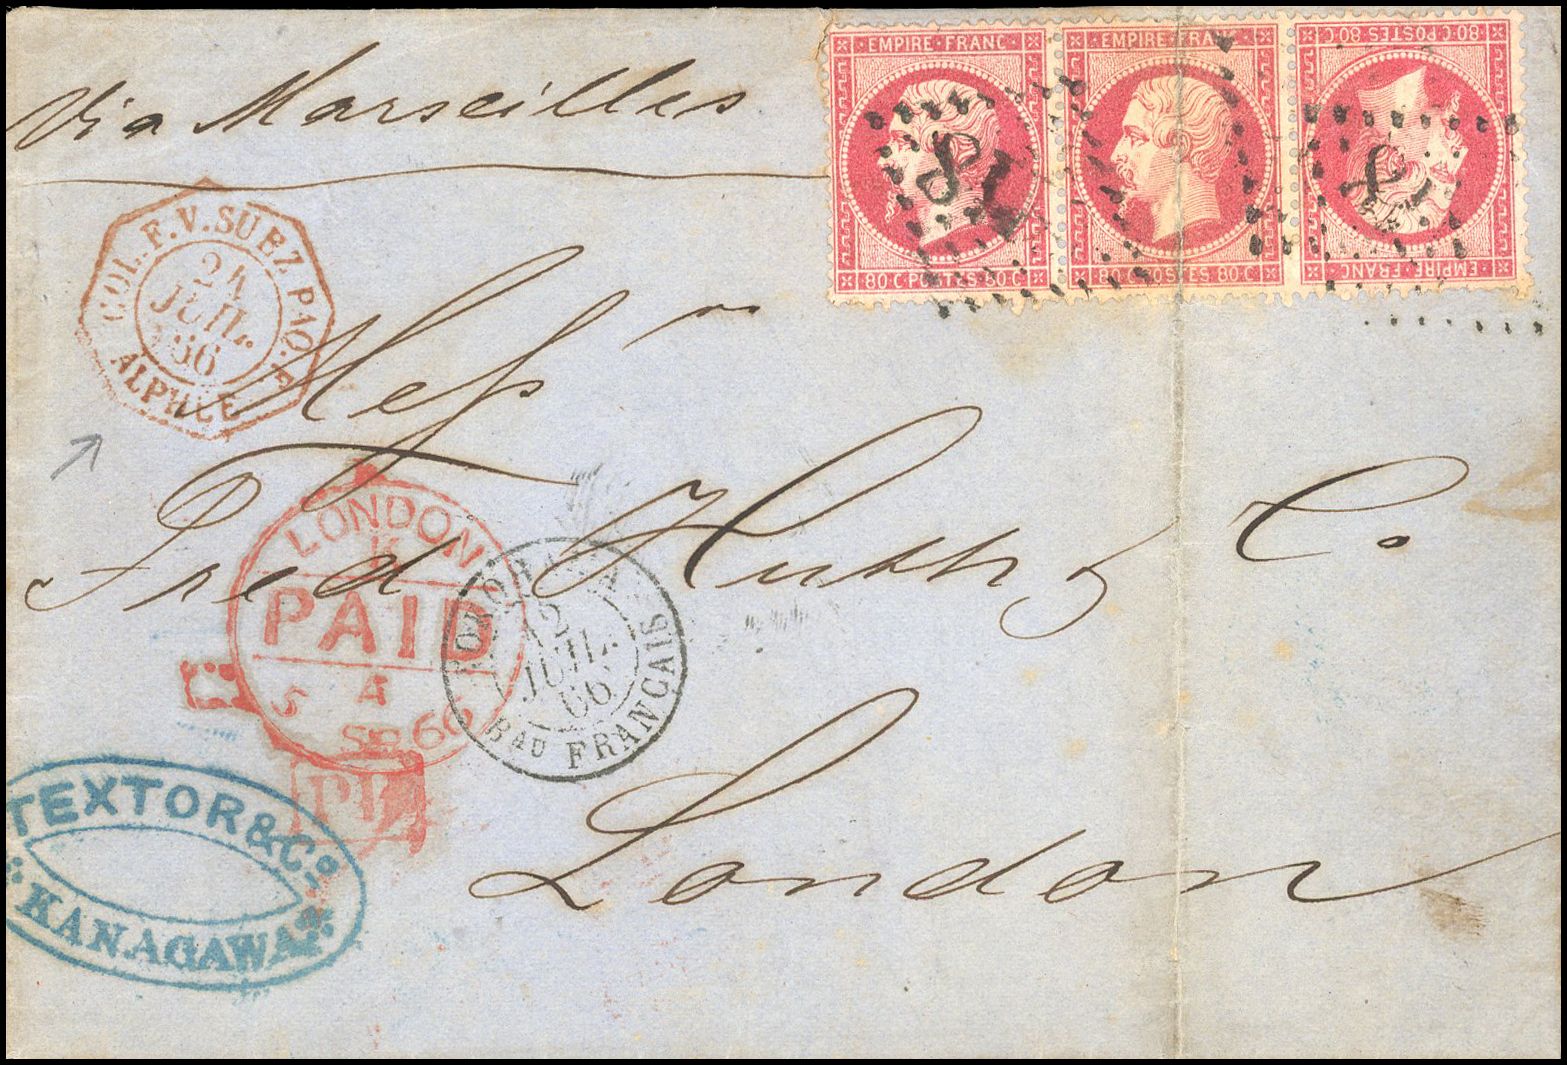 Via Marseilles
EMPIRE FRANC
80 C POSTES 80 C
EMPIRE FRANC
80 C POSTES 80 C
80 C POSTES 80 C
EMPIRE FRANC
COL. F. V. SUEZ PAQ. F.
24
JUIL.
66
ALPHÉE
Messrs
Fred Huth & Co
London
LONDON
K
PAID
5 A
SP 66
12
JUIL.
66
BAU FRANÇAIS
TEXTOR & Co
KANAGAWA